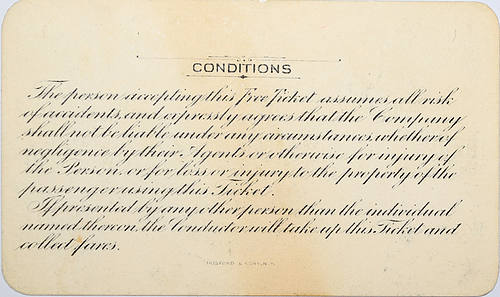 CONDITIONS
The person accepting this Free Ticket assumes all risk
of accidents, and expressly agrees that the Company
shall not be liable under any circumstances, whether of
negligence by their Agents, or otherwise for injury of
the Person, or for loss or injury to the property of the
passenger using this Ticket.
If presented by any other person than the individual
named thereon, the Conductor will take up this Ticket and
collect fares.